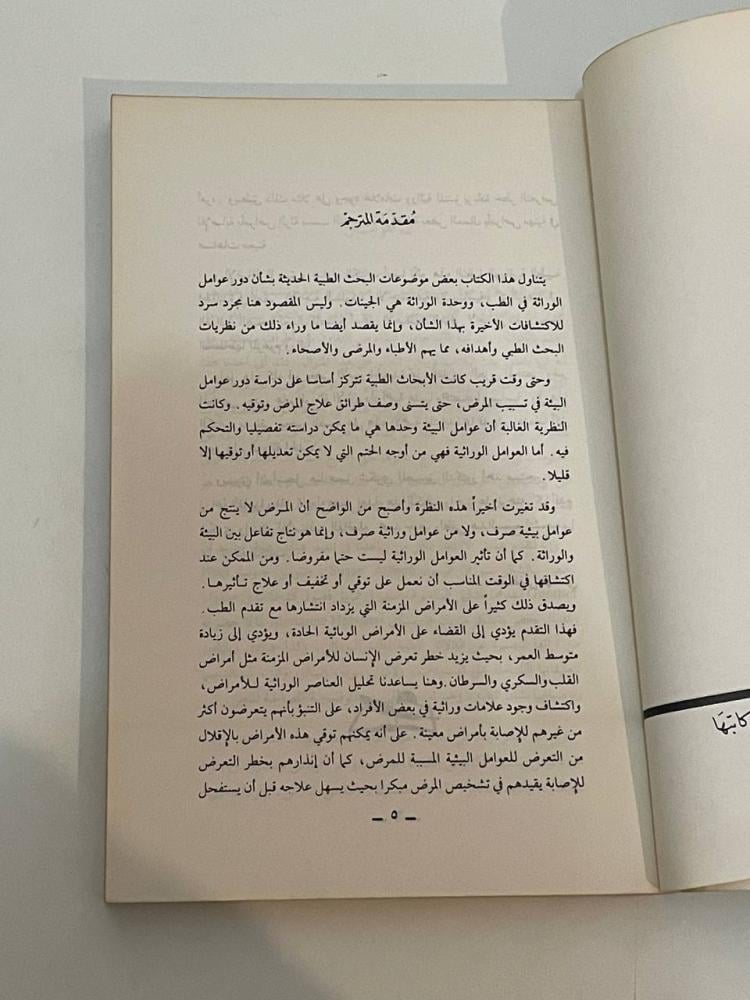 مُقدّمَة المترجم
يتناول هذا الكتاب بعض موضوعات البحث الطبية الحديثة بشأن دور عوامل
الوراثة في الطب، ووحدة الوراثة هي الجينات. وليس المقصود هنا مجرد سرد
للاكتشافات الأخيرة بهذا الشأن، وإنما يقصد أيضا ما وراء ذلك من نظريات
البحث الطبي وأهدافه، مما يهم الأطباء والمرضى والأصحاء.
وحتى وقت قريب كانت الأبحاث الطبية تتركز أساسا على دراسة دور عوامل
البيئة في تسبيب المرض، حتى يتسنى وصف طرائق علاج المرض وتوقيه. وكانت
النظرية الغالبة أن عوامل البيئة وحدها هي ما يمكن دراسته تفصيليا والتحكم
فيه. أما العوامل الوراثية فهي من أوجه الحتم التي لا يمكن تعديلها أو توقيها إلا
قليلا.
وقد تغيرت أخيراً هذه النظرة وأصبح من الواضح أن المرض لا ينتج من
عوامل بيئية صرف، ولا من عوامل وراثية صرف، وإنما هو نتاج تفاعل بين البيئة
والوراثة. كما أن تأثير العوامل الوراثية ليست حتما مفروضا. ومن الممكن عند
اكتشافها في الوقت المناسب أن نعمل على توقي أو تخفيف أو علاج تأثيرها.
ويصدق ذلك كثيراً على الأمراض المزمنة التي يزداد انتشارها مع تقدم الطب.
فهذا التقدم يؤدي إلى القضاء على الأمراض الوبائية الحادة، ويؤدي إلى زيادة
متوسط العمر، بحيث يزيد خطر تعرض الإنسان للأمراض المزمنة مثل أمراض
القلب والسكري والسرطان. وهنا يساعدنا تحليل العناصر الوراثية للأمراض،
واكتشاف وجود علامات وراثية في بعض الأفراد، على التنبؤ بأنهم يتعرضون أكثر
من غيرهم للإصابة بأمراض معينة. على أنه يمكنهم توقي هذه الأمراض بالإقلال
من التعرض للعوامل البيئية المسببة للمرض، كما أن إنذارهم بخطر التعرض
للإصابة يفيدهم في تشخيص المرض مبكرا بحيث يسهل علاجه قبل أن يستفحل
ـ ٥ ـ
كاتبها